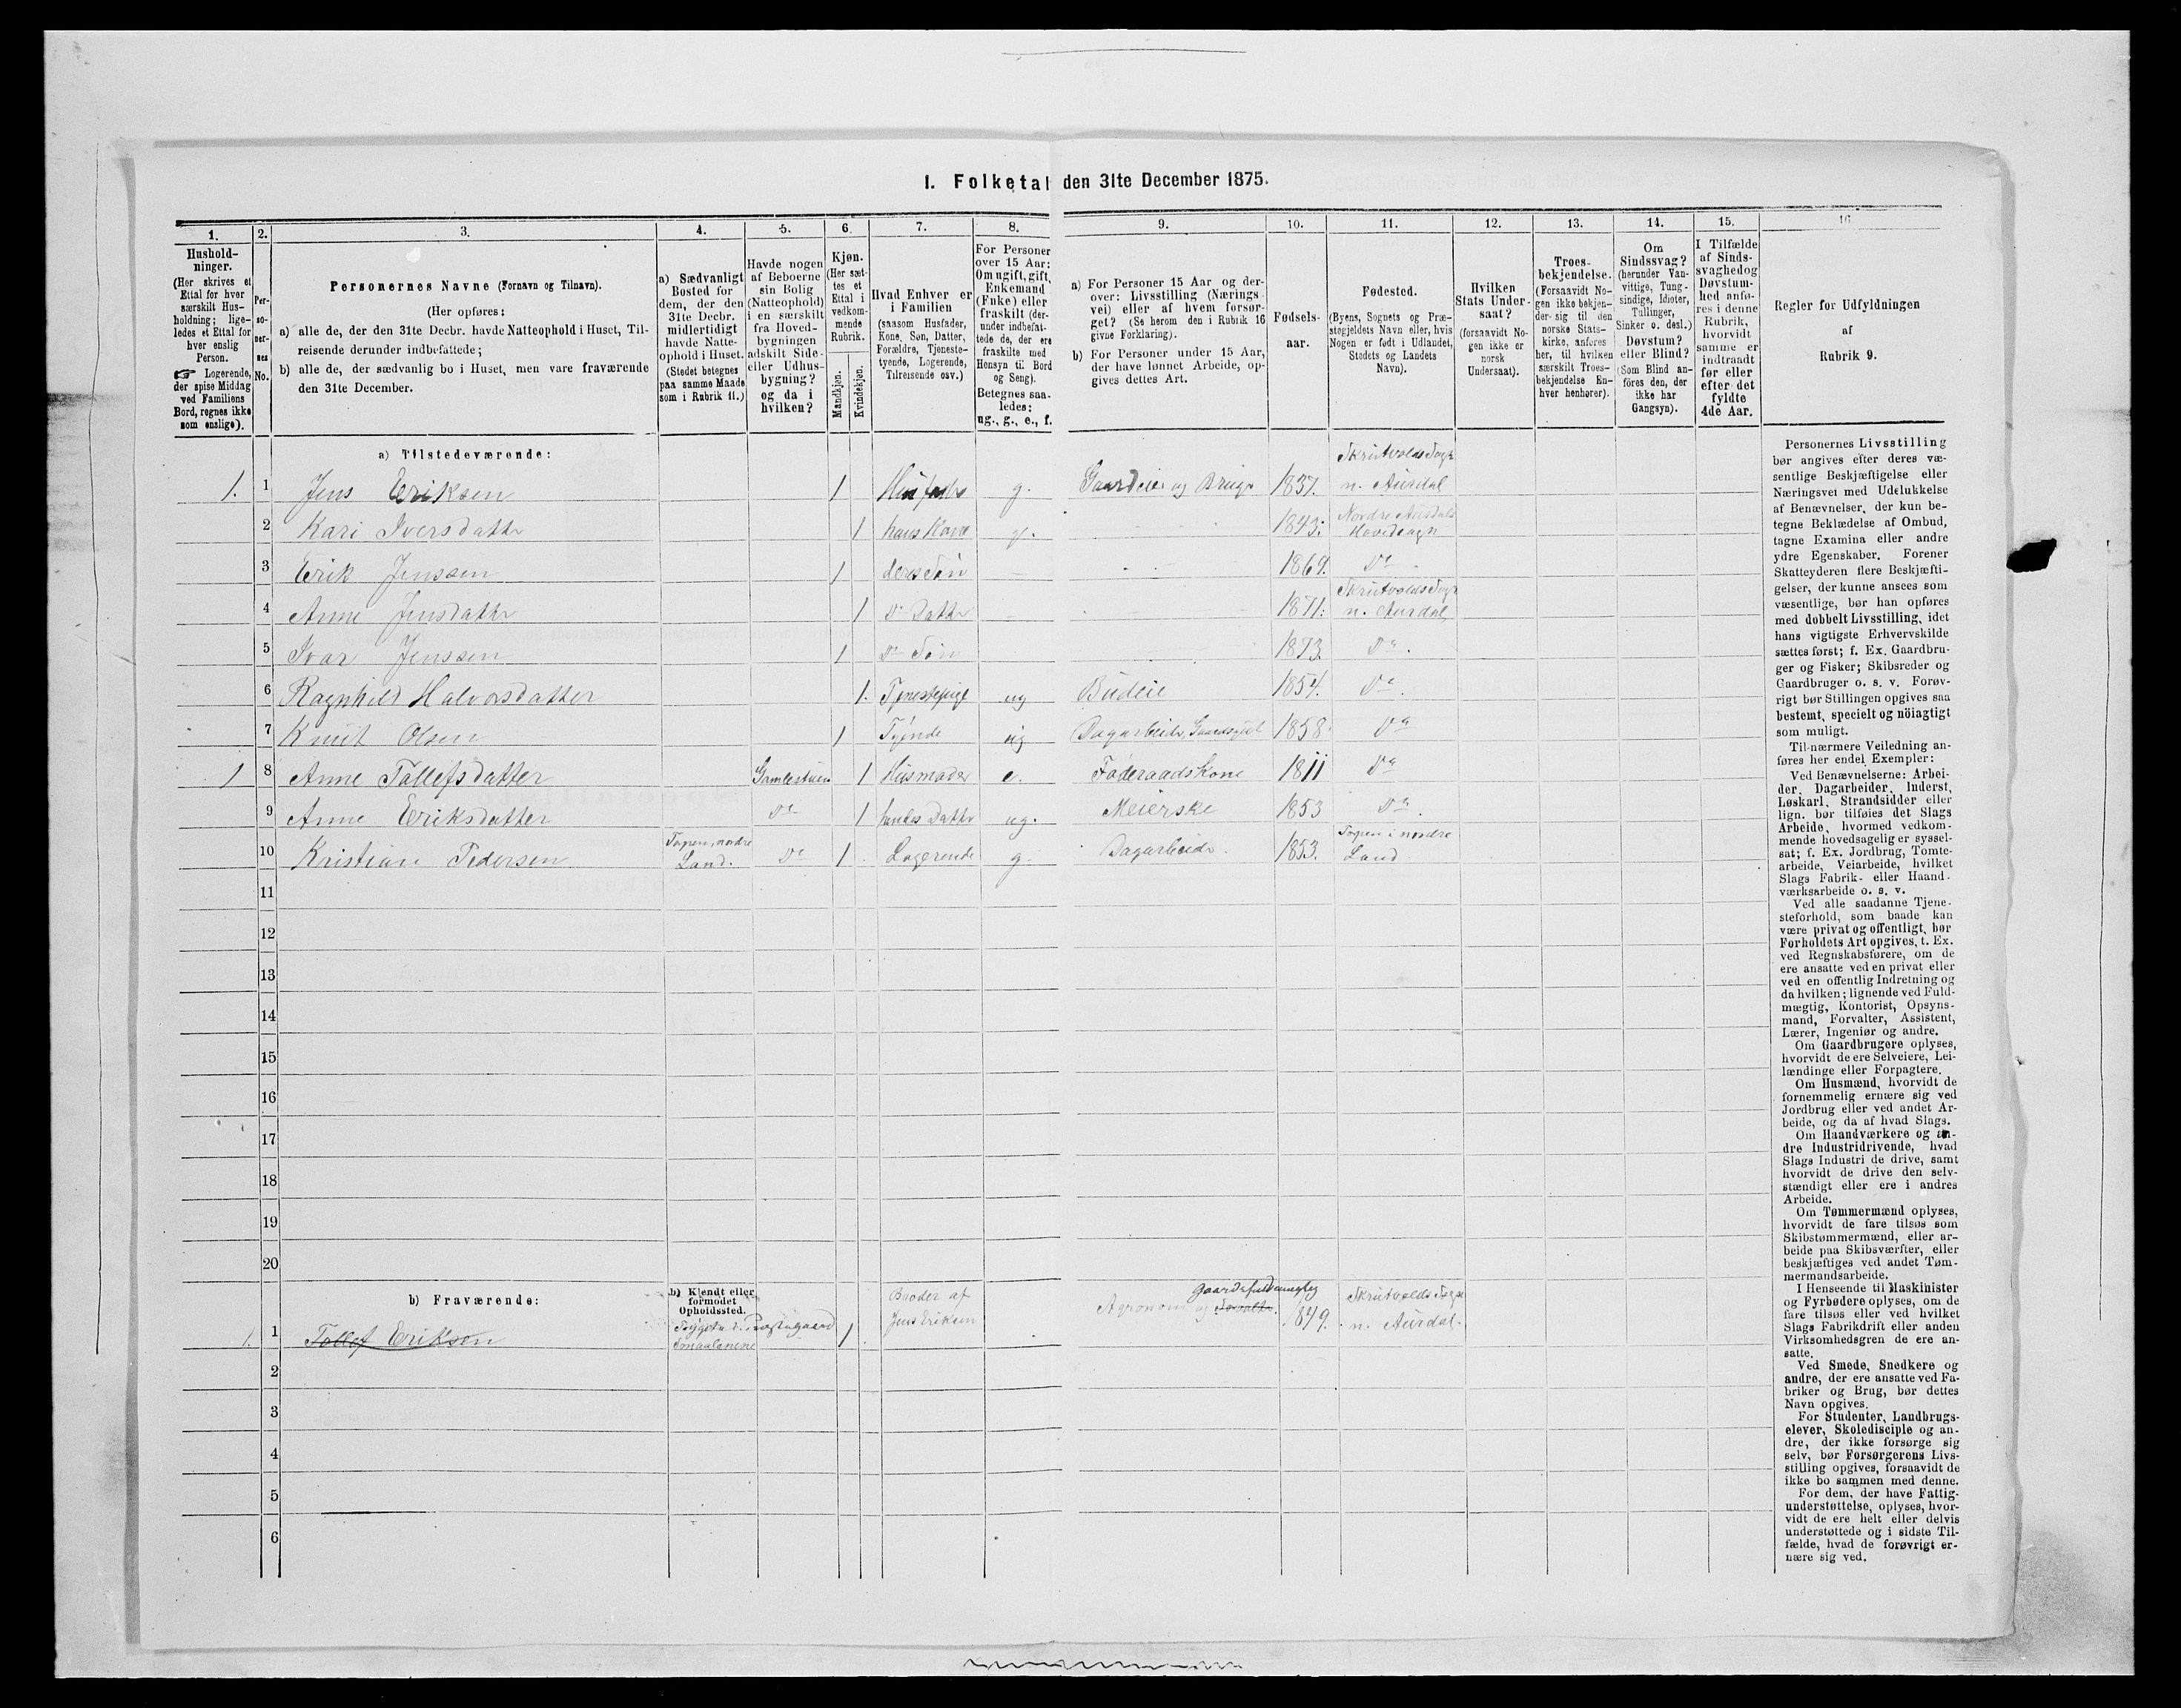 I. Folketal den 31te December 1875.
1. 2. 3. 4. 5. 6. 7. 8. 9. 10. 11. 12. 13. 14. 15. 16
Hushold-
ninger.
(Her skrives et
Ettal for hver
særskilt Hus-
holdning; lige-
ledes et Ettal for
hver enslig
Person.
☞ Logerende,
der spise Middag
ved Familiens
Bord, regnes ikke
som enslige).
Per-
so-
ner-
nes
No.
Personernes Navne (Fornavn og Tilnavn).
(Her opføres:
a) alle de, der den 31te Decbr. havde Natteophold i Huset, Til-
reisende derunder indbefattede;
b) alle de, der sædvanlig bo i Huset, men vare fraværende
den 31te December.
a) Sædvanligt
Bosted for
dem, der den
31te Decbr.
midlertidigt
havde Natte-
ophold i Huset.
(Stedet betegnes
paa samme Maade
som i Rubrik 11.)
Havde nogen
af Beboerne
sin Bolig
(Natteophold)
i en særskilt
fra Hoved-
bygningen
adskilt Side-
eller Udhus-
bygning?
og da i
hvilken?
Kjøn.
(Her sæt-
tes et
Ettal i
vedkom-
mende
Rubrik.
Mandkjøn.
Kvindekjøn.
Hvad Enhver er
i Familien
(saasom Husfader,
Kone, Søn, Datter,
Forældre, Tjeneste-
tyende, Logerende,
Tilreisende osv.)
For Personer
over 15 Aar:
Om ugift, gift,
Enkemand
(Enke) eller
fraskilt (der-
under indbefat-
tede de, der ere
fraskilte med
Hensyn til Bord
og Seng).
Betegnes saa-
ledes:
ug., g., e., f.
a) For Personer 15 Aar og der-
over: Livsstilling (Nærings-
vei) eller af hvem forsør-
get? (Se herom den i Rubrik 16
givne Forklaring).
b) For Personer under 15 Aar,
der have lønnet Arbeide, op-
gives dettes Art.
Fødsels-
aar.
Fødested.
(Byens, Sognets og Præ-
stegjeldets Navn eller, hvis
Nogen er født i Udlandet,
Stedets og Landets
Navn).
Hvilken
Stats Under-
saat?
(forsaavidt No-
gen ikke er
norsk
Undersaat).
Troes-
bekjendelse.
(Forsaavidt No-
gen ikke bekjen-
der sig til den
norske Stats-
kirke, anføres
her, til hvilken
særskilt Troes-
bekjendelse En-
hver henhører).
Om
Sindssvag?
(herunder Van-
vittige, Tung-
sindige, Idioter,
Tullinger,
Sinker o. desl.)
Døvstum?
eller Blind?
(Som Blind an-
føres den, der
ikke har
Gangsyn).
I Tilfælde
af Sinds-
svaghed og
Døvstum-
hed anfø-
res i denne
Rubrik,
hvorvidt
samme er
indtraadt
før eller
efter det
fyldte
4de Aar.
Regler for Udfyldningen
af
Rubrik 9.
a) Tilstedeværende:
Skrutvolds Sogn
1. 1 Jens Eriksen 1 Husfader g. Gaardeier og Bruger 1837. n. Aurdal
Nordre Aurdals
2 Kari Iversdatter 1 hans Kone g. 1843. Hovedsogn
3 Erik Jenssen 1 deres Søn 1869. Do
Skrutvolds Sogn
4 Anne Jensdatter 1 Do Datter 1871. n. Aurdal
5 Ivar Jenssen 1 Do Søn 1873 Do.
6 Ragnhild Halvorsdatter 1. Tjenestepige ug Budeie 1854. Do.
7 Knut Olsen 1 Tyende ug Dagarbeider, 1858 Do
1 8 Anne Tollefsdatter Gamlestuen 1 Husmoder e. Føderaadskone 1811 Do
9 Anne Eriksdatter Do 1 hendes Datter ug. Meierske 1853 Do
nordre i nordre
10 Kristian Pedersen Land. Do 1 Logerende g. Dagarbeider. 1853. Land
11
12
13
14
15
16
17
18
19
20
b) Fraværende:
b) Kjendt eller
formodet
Opholdssted.
Broder af
Jens Eriksen
Gaardsfuldmægtig
Agronom og Forvalter. 1849.
Skrutvolds Sogn
n. Aurdal.
1. 1 Tollef Eriksen 1
2
3
4
5
6
Personernes Livsstilling
bør angives efter deres væ-
sentlige Beskjæftigelse eller
Næringsvei med Udelukkelse
af Benævnelser, der kun be-
tegne Beklædelse af Ombud,
tagne Examina eller andre
ydre Egenskaber. Forener
Skatteyderen flere Beskjæfti-
gelser, der kunne ansees som
væsentlige, bør han opføres
med dobbelt Livsstilling, idet
hans vigtigste Erhvervskilde
sættes først; f. Ex. Gaardbru-
ger og Fisker; Skibsreder og
Gaardbruger o. s. v. Forøv-
rigt bør Stillingen opgives saa
bestemt, specielt og nöiagtigt
som muligt.
Til nærmere Veiledning an-
føres her endel Exempler:
Ved Benævnelserne: Arbei-
der, Dagarbeider, Inderst,
Løskarl, Strandsidder eller
lign. bør tilføies det Slags
Arbeide, hvormed vedkom-
mende hovedsagelig er syssel-
sat; f. Ex. Jordbrug, Tomte-
arbeide, Veiarbeide, hvilket
Slags Fabrik- eller Haand-
værksarbeide o. s. v.
Ved alle saadanne Tjene-
steforhold, som baade kan
være privat og offentligt, bør
Forholdets Art opgives, t. Ex.
ved Regnskabsførere, om de
ere ansatte ved en privat eller
ved en offentlig Indretning og
da hvilken; lignende ved Fuld-
mægtig, Kontorist, Opsyns-
mand, Forvalter, Assistent,
Lærer, Ingeniør og andre.
Om Gaardbrugere oplyses,
hvorvidt de ere Selveiere, Lei-
lændinge eller Forpagtere.
Om Husmænd, hvorvidt de
fornemmelig ernære sig ved
Jordbrug eller ved andet Ar-
beide, og da af hvad Slags.
Om Haandværkere og an-
dre Industridrivende, hvad
Slags Industri de drive, samt
hvorvidt de drive den selv-
stændigt eller ere i andres
Arbeide.
Om Tømmermænd oplyses,
hvorvidt de fare tilsøs som
Skibstømmermænd, eller ar-
beide paa Skibsværfter, eller
beskjæftiges ved andet Tøm-
mermandsarbeide.
I Henseende til Maskinister
og Fyrbødere oplyses, om de
fare tilsøs eller ved hvilket
Slags Fabrikdrift eller anden
Virksomhedsgren de ere an-
satte.
Ved Smede, Snedkere og
andre, der ere ansatte ved Fa-
briker og Brug, bør dettes
Navn opgives.
For Studenter, Landbrugs-
elever, Skoledisciple og an-
dre, der ikke forsørge sig
selv, bør Forsørgerens Livs-
stilling opgives, forsaavidt de
ikke bo sammen med denne.
For dem, der have Fattig-
understøttelse, oplyses, hvor-
vidt de ere helt eller delvis
understøttede og i sidste Til-
fælde, hvad de forøvrigt er-
nære sig ved.